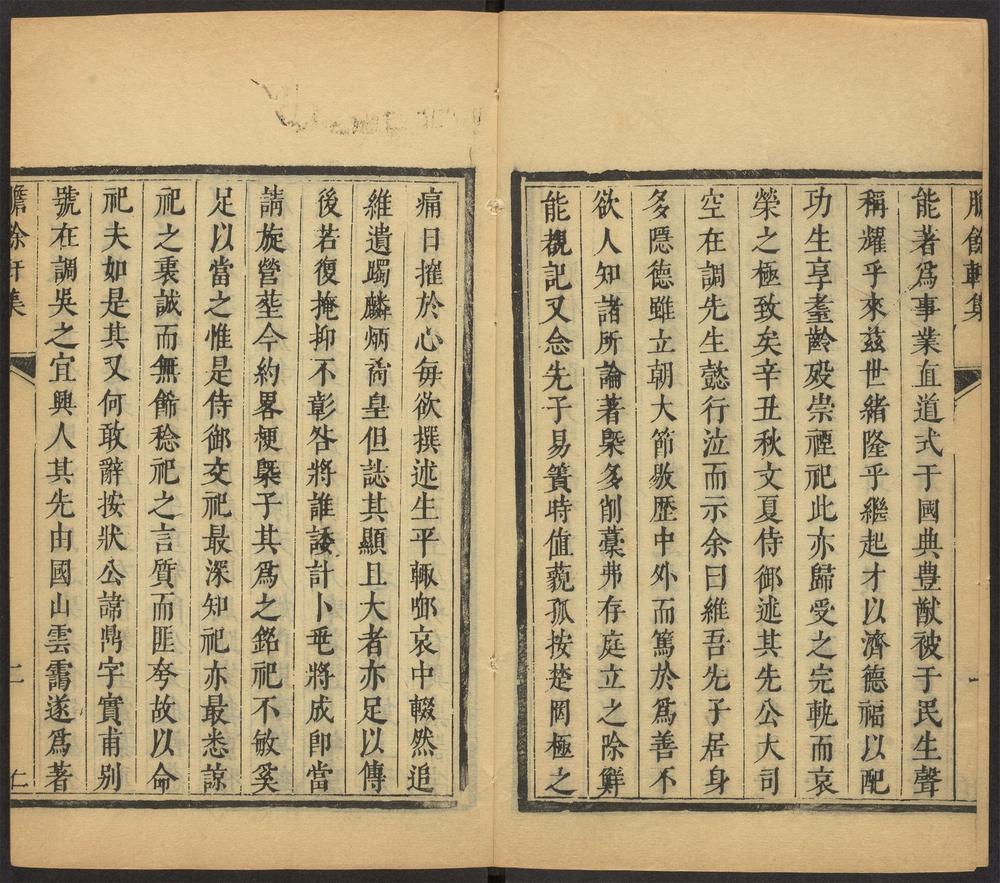 賸餘軒集
能著爲事業直道式于國典豊猷被于民生聲
稱耀乎來兹世緒隆乎繼起才以濟德福以配
功生享耋齡殁崇禋祀此亦歸受之完軌而哀
榮之極致矣辛丑秋文夏侍御述其先公大司
空在調先生懿行泣而示余曰維吾先子居身
多隱德雖立朝大節敭歷中外而篤於爲善不
欲人知諸所論著槩多削藁弗存庭立之除鮮
能覩記又念先子易簀時值藐孤按楚罔極之
痛日摧於心毎欲撰述生平輙唧哀中輟然追
維遺躅麟炳矞皇但誌其顯且大者亦足以傳
後若復掩抑不彰咎將誰諉計卜電將成卽當
請旋營塟今約畧梗槩子其爲之銘祀不敏奚
足以當之惟是侍御交祀最深知祀亦最悉諒
祀之衷誠而無餙稔祀之言質而匪夸故以命
祀夫如是其又何敢辭按狀公諱鼎字實甫别
號在調吳之宜興人其先由國山雲霱遂爲著
賸餘軒集
二